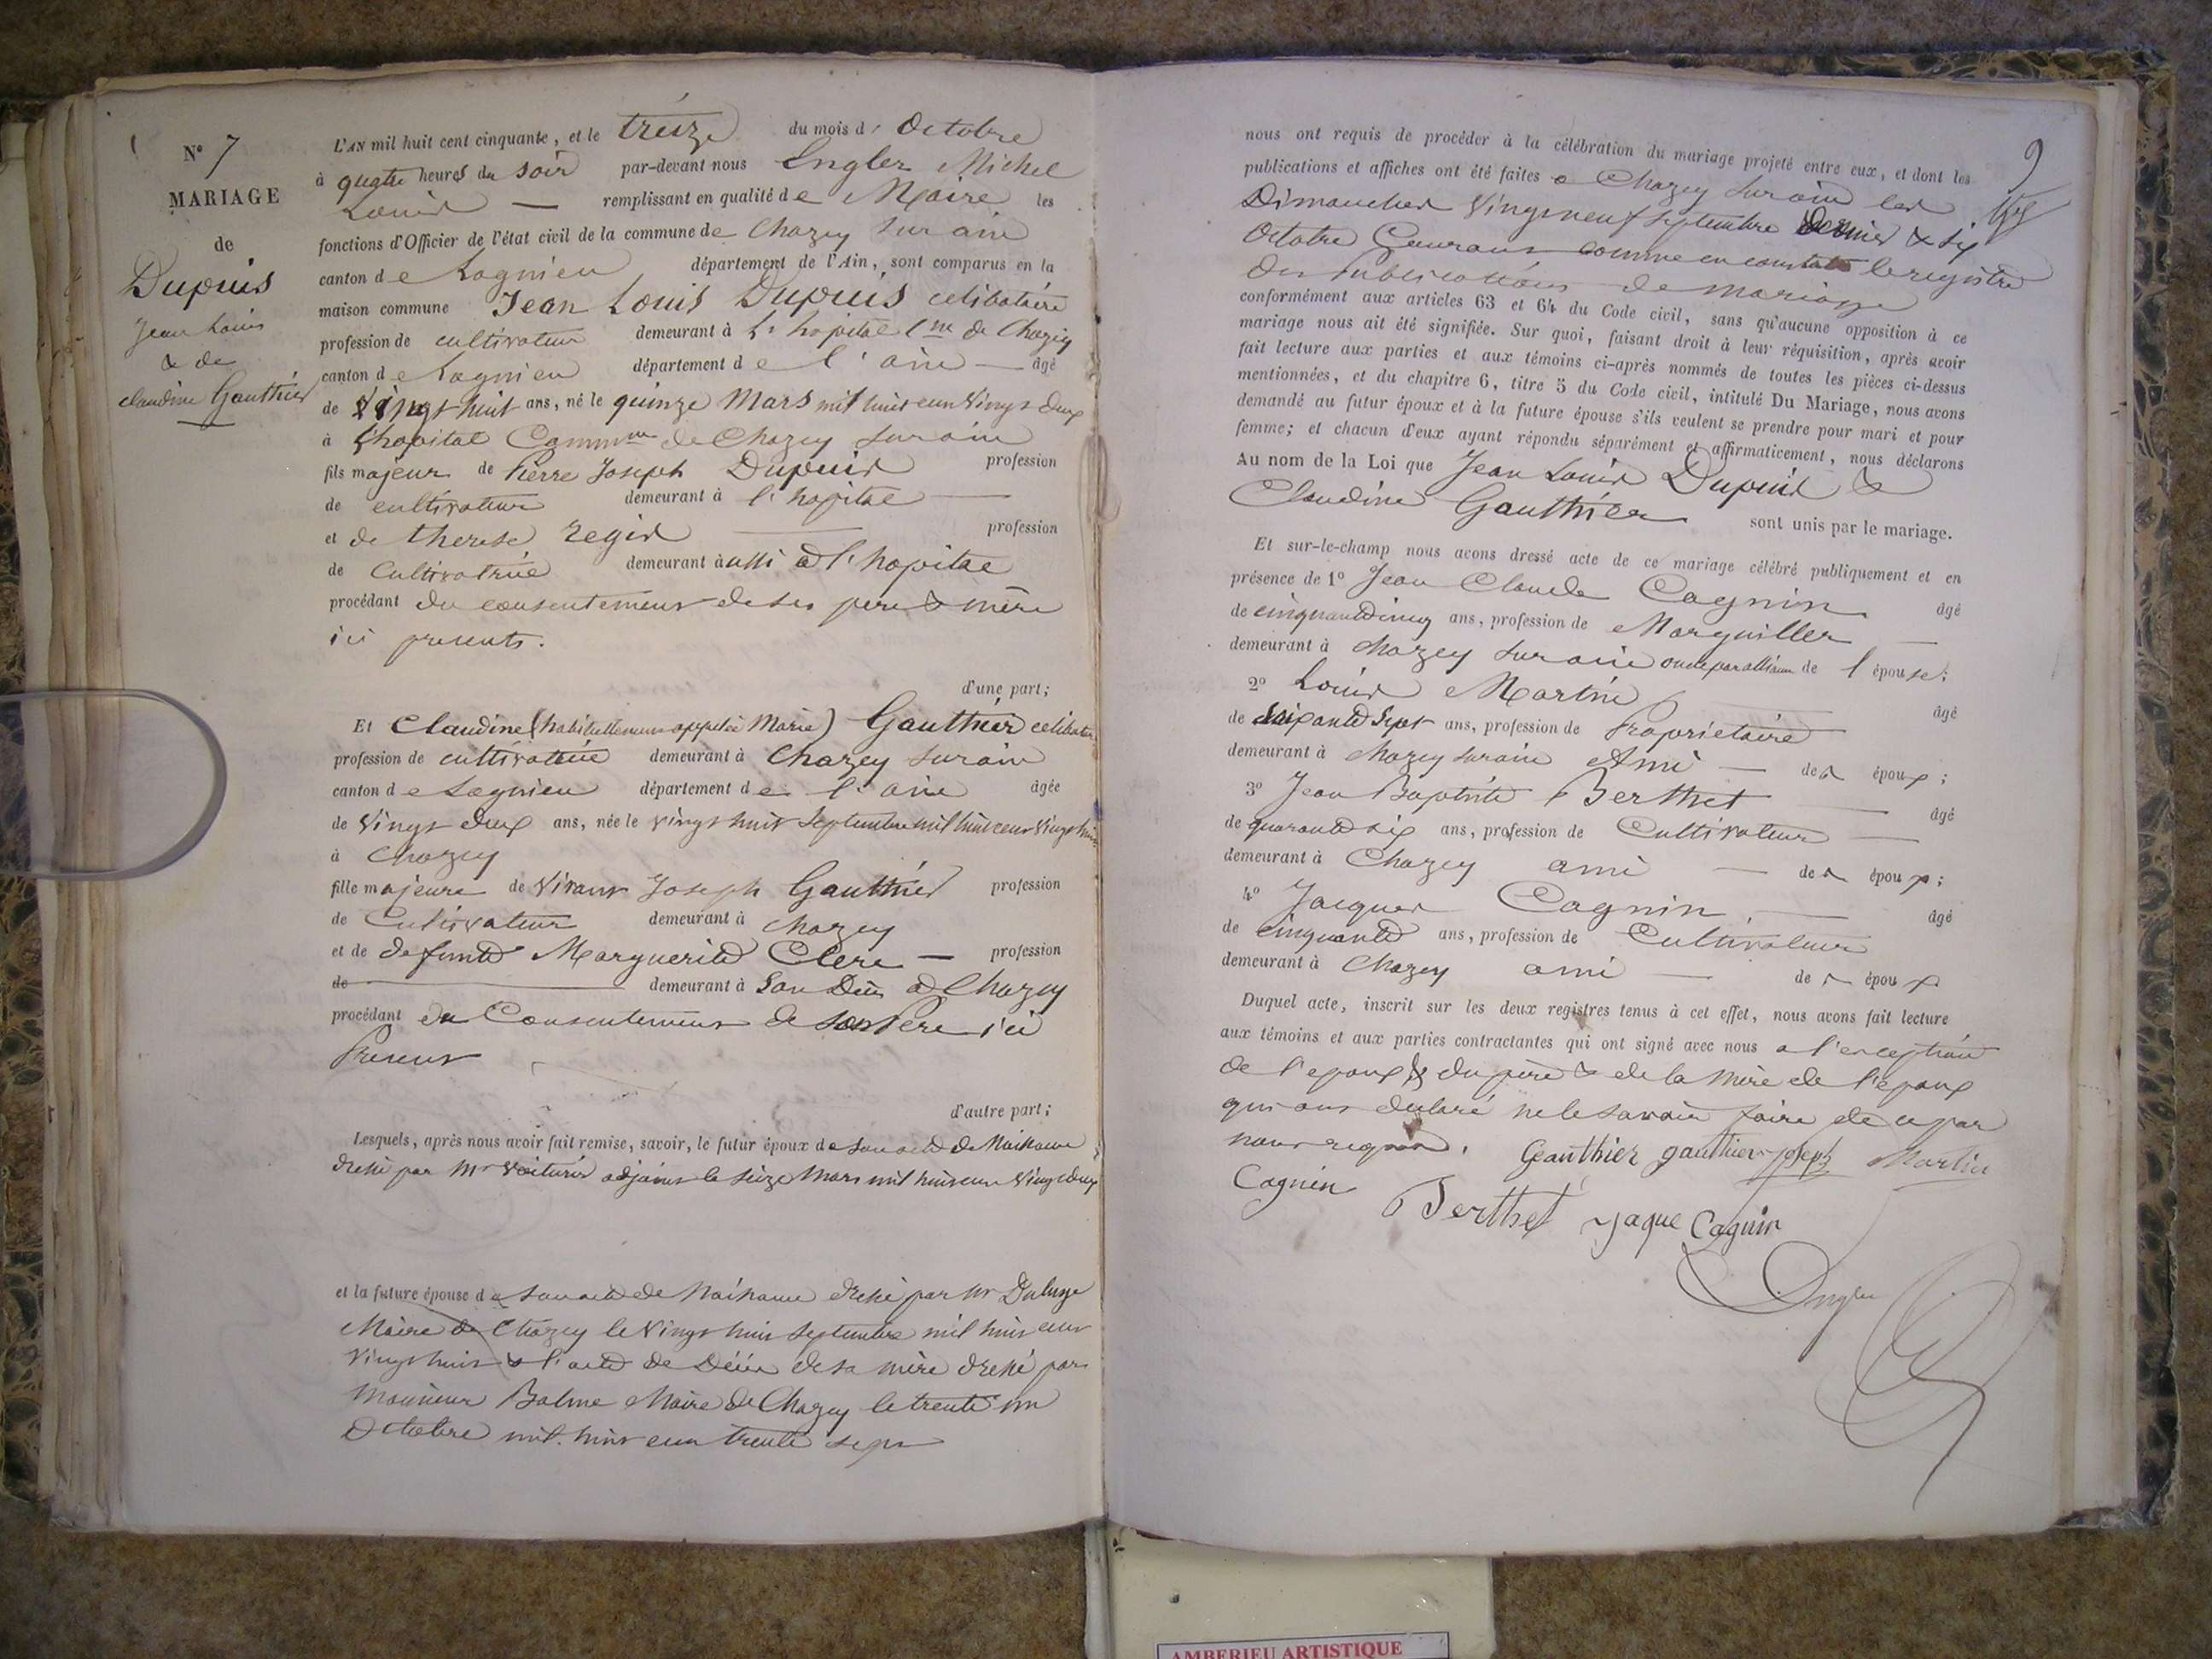 N° 7
MARIAGE
de
Dupuis
Jean Louis
& de
Claudine Gauthier
L'AN mil huit cent cinquante, et le treize du mois d' Octobre
à quatre heures du soir par-devant nous Engler Michel
Louis — remplissant en qualité de Maire les
fonctions d'Officier de l'état civil de la commune de Chazey sur ain
canton de Lagnieu département de l'Ain, sont comparus en la
maison commune Jean Louis Dupuis celibataire
profession de cultivateur demeurant à L'hopital Cne de Chazey
canton de Lagnieu département de l'ain — âgé
de vingt huit ans, né le quinze Mars mil huit cent vingt deux
à l'hopital Commune de Chazey sur ain
fils majeur de Pierre Joseph Dupuis profession
de cultivateur demeurant à l'hopital
et de therese Regis profession
de Cultivatrice demeurant aussi à l'hopital
procédant du consentement de ses pere & mère
ici presents.
d'une part;
Et Claudine (habituellement appelée Marie) Gauthier celibataire
profession de cultivatrice demeurant à Chazey sur ain
canton de Lagnieu département de l'ain âgée
de vingt deux ans, née le vingt huit Septembre mil huit cent vingt huit
à Chazey
fille majeure de vivant Joseph Gauthier profession
de Cultivateur demeurant à Chazey
et de defunte Marguerite Clerc — profession
de demeurant à Son Décès à Chazey
procédant du Consentement de son Père ici
Present
d'autre part;
Lesquels, après nous avoir fait remise, savoir, le futur époux de son acte de Naissance
dressé par Mr Voiturier adjoint le seize Mars mil huit cent vingt deux
et la future épouse de son acte de Naissance dressé par Mr
Maire de Chazey le vingt huit Septembre mil huit cent
vingt huit & l'acte de Décès de sa mère dressé par
Monsieur Balme Maire de Chazey le trente un
Octobre mil huit cent trente sept
9
nous ont requis de procéder à la célébration du mariage projeté entre eux, et dont les
publications et affiches ont été faites à Chazey sur ain les
Dimanches vingt neuf septembre dernier & six
Octobre Courant comme en constate le registre
des Publications de mariage
conformément aux articles 63 et 64 du Code civil, sans qu'aucune opposition à ce
mariage nous ait été signifiée. Sur quoi, faisant droit à leur réquisition, après avoir
fait lecture aux parties et aux témoins ci-après nommés de toutes les pièces ci-dessus
mentionnées, et du chapitre 6, titre 5 du Code civil, intitulé Du Mariage, nous avons
demandé au futur époux et à la future épouse s'ils veulent se prendre pour mari et pour
femme; et chacun d'eux ayant répondu séparément et affirmativement, nous déclarons
Au nom de la Loi que Jean Louis Dupuis &
Claudine Gauthier sont unis par le mariage.
Et sur-le-champ nous avons dressé acte de ce mariage célébré publiquement et en
présence de 1° Jean Claude Cagnin âgé
de cinquante cinq ans, profession de Marguiller
demeurant à Chazey sur ain oncle par alliance de l'épouse;
2° Louis Martin âgé
de soixante Sept ans, profession de Propriétaire
demeurant à Chazey sur ain Ami — de l'époux;
3° Jean Baptiste Berthet âgé
de quarante six ans, profession de Cultivateur
demeurant à Chazey ami — de l'époux;
4° Jacques Cagnin âgé
de cinquante ans, profession de Cultivateur
demeurant à Chazey ami — de l'époux
Duquel acte, inscrit sur les deux registres tenus à cet effet, nous avons fait lecture
aux témoins et aux parties contractantes qui ont signé avec nous à l'exception
de l'epoux & du père & de la mère de l'epoux
qui ont declaré ne le savoir faire de ce par
nous requis. Gauthier gauthier joseph Martin
Cagnin Berthet yaque Cagnin
Engler
AMBERIEU ARTISTIQUE